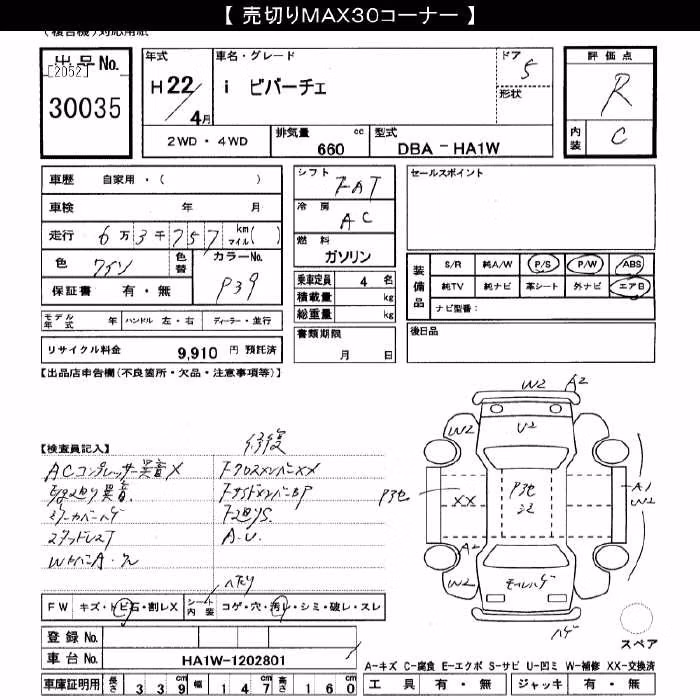 【 売切りMAX30コーナー 】
(複合機)対応用紙
出品No. [2052] 30035
年式 H22/4月
車名・グレード i ビバーチェ
ドア 5
形状
評価点 R
内装 C
2WD・4WD
排気量 cc 660
型式 DBA-HA1W
車歴 自家用・( )
車検 年 月
走行 6万3千757 km マイル( )
色 ワイン
色替
カラーNo. P39
保証書 有・無
モデル年式 年 ハンドル 左・右 ディーラー・並行
リサイクル料金 9,910 円 預託済
シフト FAT
冷房 AC
燃料 ガソリン
乗車定員 4 名
積載量 kg
総重量 kg
書類期限 月 日
セールスポイント
装備品 S/R 純A/W P/S P/W ABS
純TV 純ナビ 革シート 外ナビ エアB
ナビ型番:
後日品
【出品店申告欄(不良箇所・欠品・注意事項等)】
【検査員記入】
修復
ACコンプレッサー異音X
FクロスメンバーXX
FサイドメンバーBP
A.U.
W2 A2
W2 U2 W2
P3色 XX P3色 A1 W2
A2
W2 モールハゲ W2
ハゲ
スペア
FW キズ・トビ石・割レX
シート内装 コゲ・穴・汚レ・シミ・破レ・スレ
登録No.
車台No. HA1W-1202801
車庫証明用 長さ 339cm 幅 147cm 高さ 160cm
A-キズ C-腐食 E-エクボ S-サビ U-凹ミ W-補修 XX-交換済
工具 有・無 ジャッキ 有・無